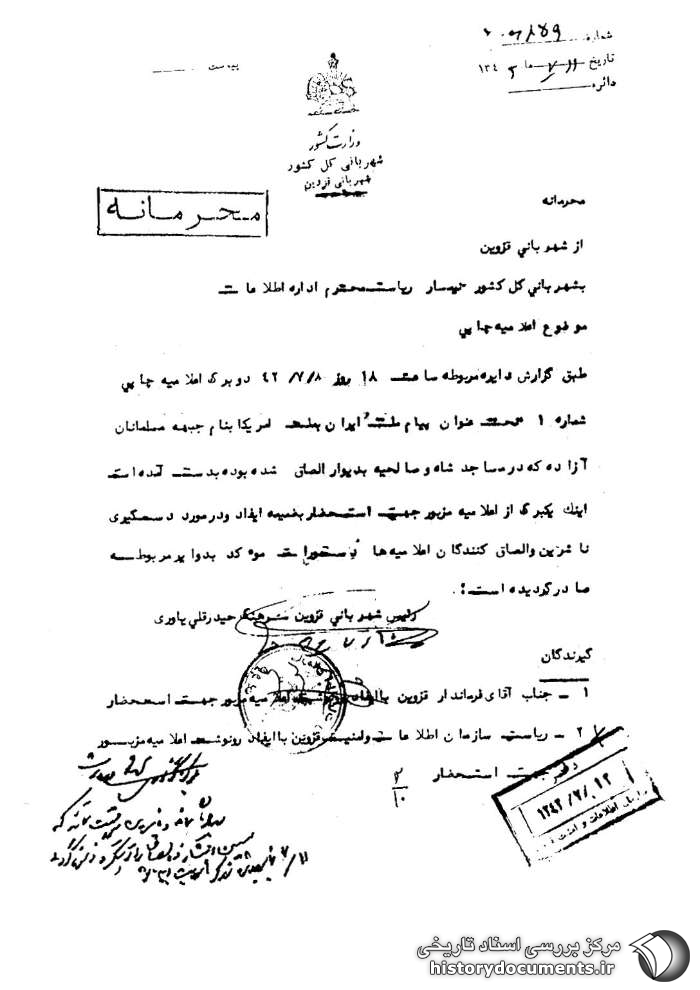 شماره
تاریخ ۱۱ ماه ۷ ۱۳۴
دائره
پیوست
وزارت کشور
شهربانی کل کشور
شهربانی قزوین
محرمانه
محرمانه
از شهربانی قزوین
بشهربانی کل کشور تیمسار ریاست محترم اداره اطلاعات
موضوع اعلامیه چاپی
طبق گزارش دایره مربوطه ساعت ۱۸ روز ۴۲/۷/۸ دو برگ اعلامیه چاپی
شماره ۱ تحت عنوان پیام ملت ایران بملت امریکا بنام جبهه مسلمانان
آزاده که در مساجد شاه و صالحیه بدیوار الصاق شده بوده بدست آمده است
اینک یکبرگ از اعلامیه مزبور جهت استحضار بضمیمه ایفاد و در مورد دستگیری
ناشرین والصاق کنندگان اعلامیه ها دستورات موکد بدوایر مربوطه
صادر گردیده است.
رئیس شهربانی قزوین سرهنگ حیدرقلی یاوری
گیرندگان
۱ - جناب آقای فرماندار قزوین با ایفاد رونوشت اعلامیه مزبور جهت استحضار
۲ - ریاست سازمان اطلاعات و امنیت قزوین با ایفاد رونوشت اعلامیه مزبور
جهت استحضار
دفتر
۱۳۴۲/۷/۱۲
سازمان اطلاعات و امنیت
۷/۱۱
مرکز بررسی اسناد تاریخی
historydocuments.ir